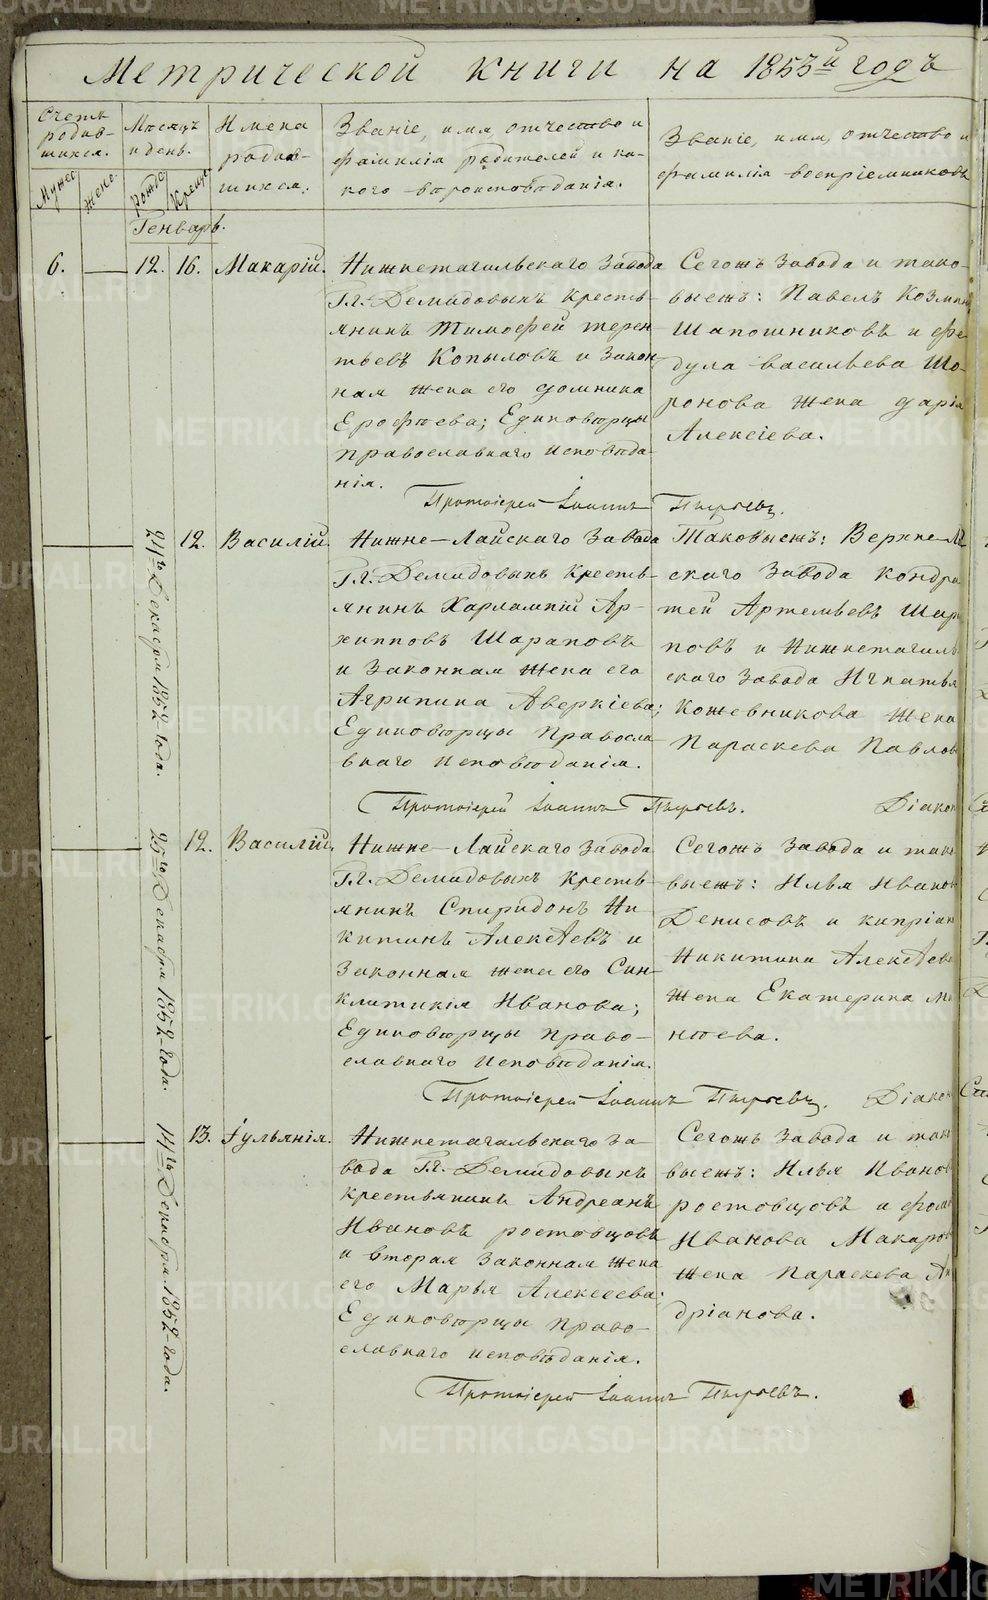 Метрической книги на 1853й годъ
Счетъ родив-
шихся.
Мужес.
Женс.
Месяцъ
и день.
Рожде.
Креще.
Имена
родив-
шихся.
Званіе, имя, отчество и
фамилія родителей и ка-
кого вѣроисповѣданія.
Званіе, имя, отчество и
фамилія воспріемниковъ
Генварь.
6.
12.
16.
Макарій.
Нижнетагильскаго Завода
Гг. Демидовыхъ кресть-
янинъ Тимофей терен-
тьевъ Копыловъ и Закон-
ная жена его домника
Ерофѣева; Единовѣрцы
православнаго исповѣда-
нія.
Сегожъ Завода и тако-
выежъ: Павелъ Козмин
Шапошниковъ и фе-
дула васильева Шо-
ронова жена дарія
Алексіева.
Протоіерей Іоаннъ
24го Декабря 1852 года.
12.
Василій.
Нижне-Лайскаго Завода
Гг. Демидовыхъ кресть-
янинъ Харлампій Ар-
хиповъ Шараповъ
и Законная жена его
Агрипина Аверкіева;
Единовѣрцы правосла
внаго исповѣданія.
Таковыежъ: Верхне-Ла
скаго Завода Кондра
тей Артемьевъ Шара
повъ и Нижнетагиль
скаго Завода Игнатья
Кожевникова жена
Параскева Павлов
Протоіерей Іоаннъ
Діакон
25го Декабря 1852 года.
12.
Василій.
Нижне-Лайскаго Завода
Гг. Демидовыхъ кресть-
янинъ Спиридонъ Ни-
китинъ Алексѣевъ и
Законная жена его Син-
клитикія Иванова;
Единовѣрцы право-
славнаго исповѣданія.
Сегожъ Завода и тако
выежъ: Илья Иванов
Денисовъ и кипріан
Никитина Алексѣев
жена Екатерина
нтѣева.
Протоіерей Іоаннъ
Діакон
14го Декабря 1852 года.
13.
Іульянія.
Нижнетагильскаго за-
вода Гг. Демидовыхъ
крестьянинъ Андреанъ
Ивановъ ростовцовъ
и вторая Законная жена
его Марья Алексеева;
Единовѣрцы право-
славнаго исповѣданія.
Сегожъ Завода и тако
выежъ: Илья Иванов
ростовцовъ и фома
Иванова Макаров
жена Параскева Ан
дріанова.
Протоіерей Іоаннъ
METRIKI.GASO-URAL.RU